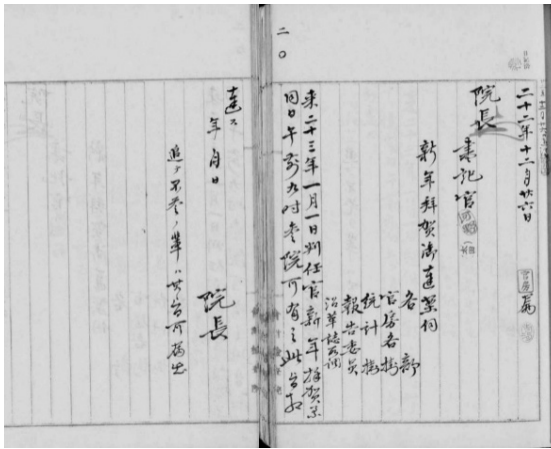 二〇
二十二年十二月廿六日
院長
書記官
新年拝賀御達案伺
各部
官房各掛
統計掛
報告委員
来二十三年一月一日判任官新年拝賀
同日午前九時参院可有之此旨相
達ス
年月日
院長
追テ不参ノ輩ハ其旨可届出